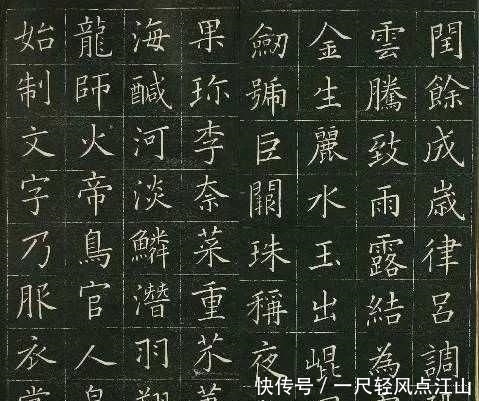 閏餘成歳律呂調
雲騰致雨露結為
金生麗水玉出崐
劒號巨闕珠稱夜
果珎李奈菜重芥
海醎河淡鱗潛羽
龍師火帝鳥官人
始制文字乃服衣
快传号 / 一尺轻风点江山